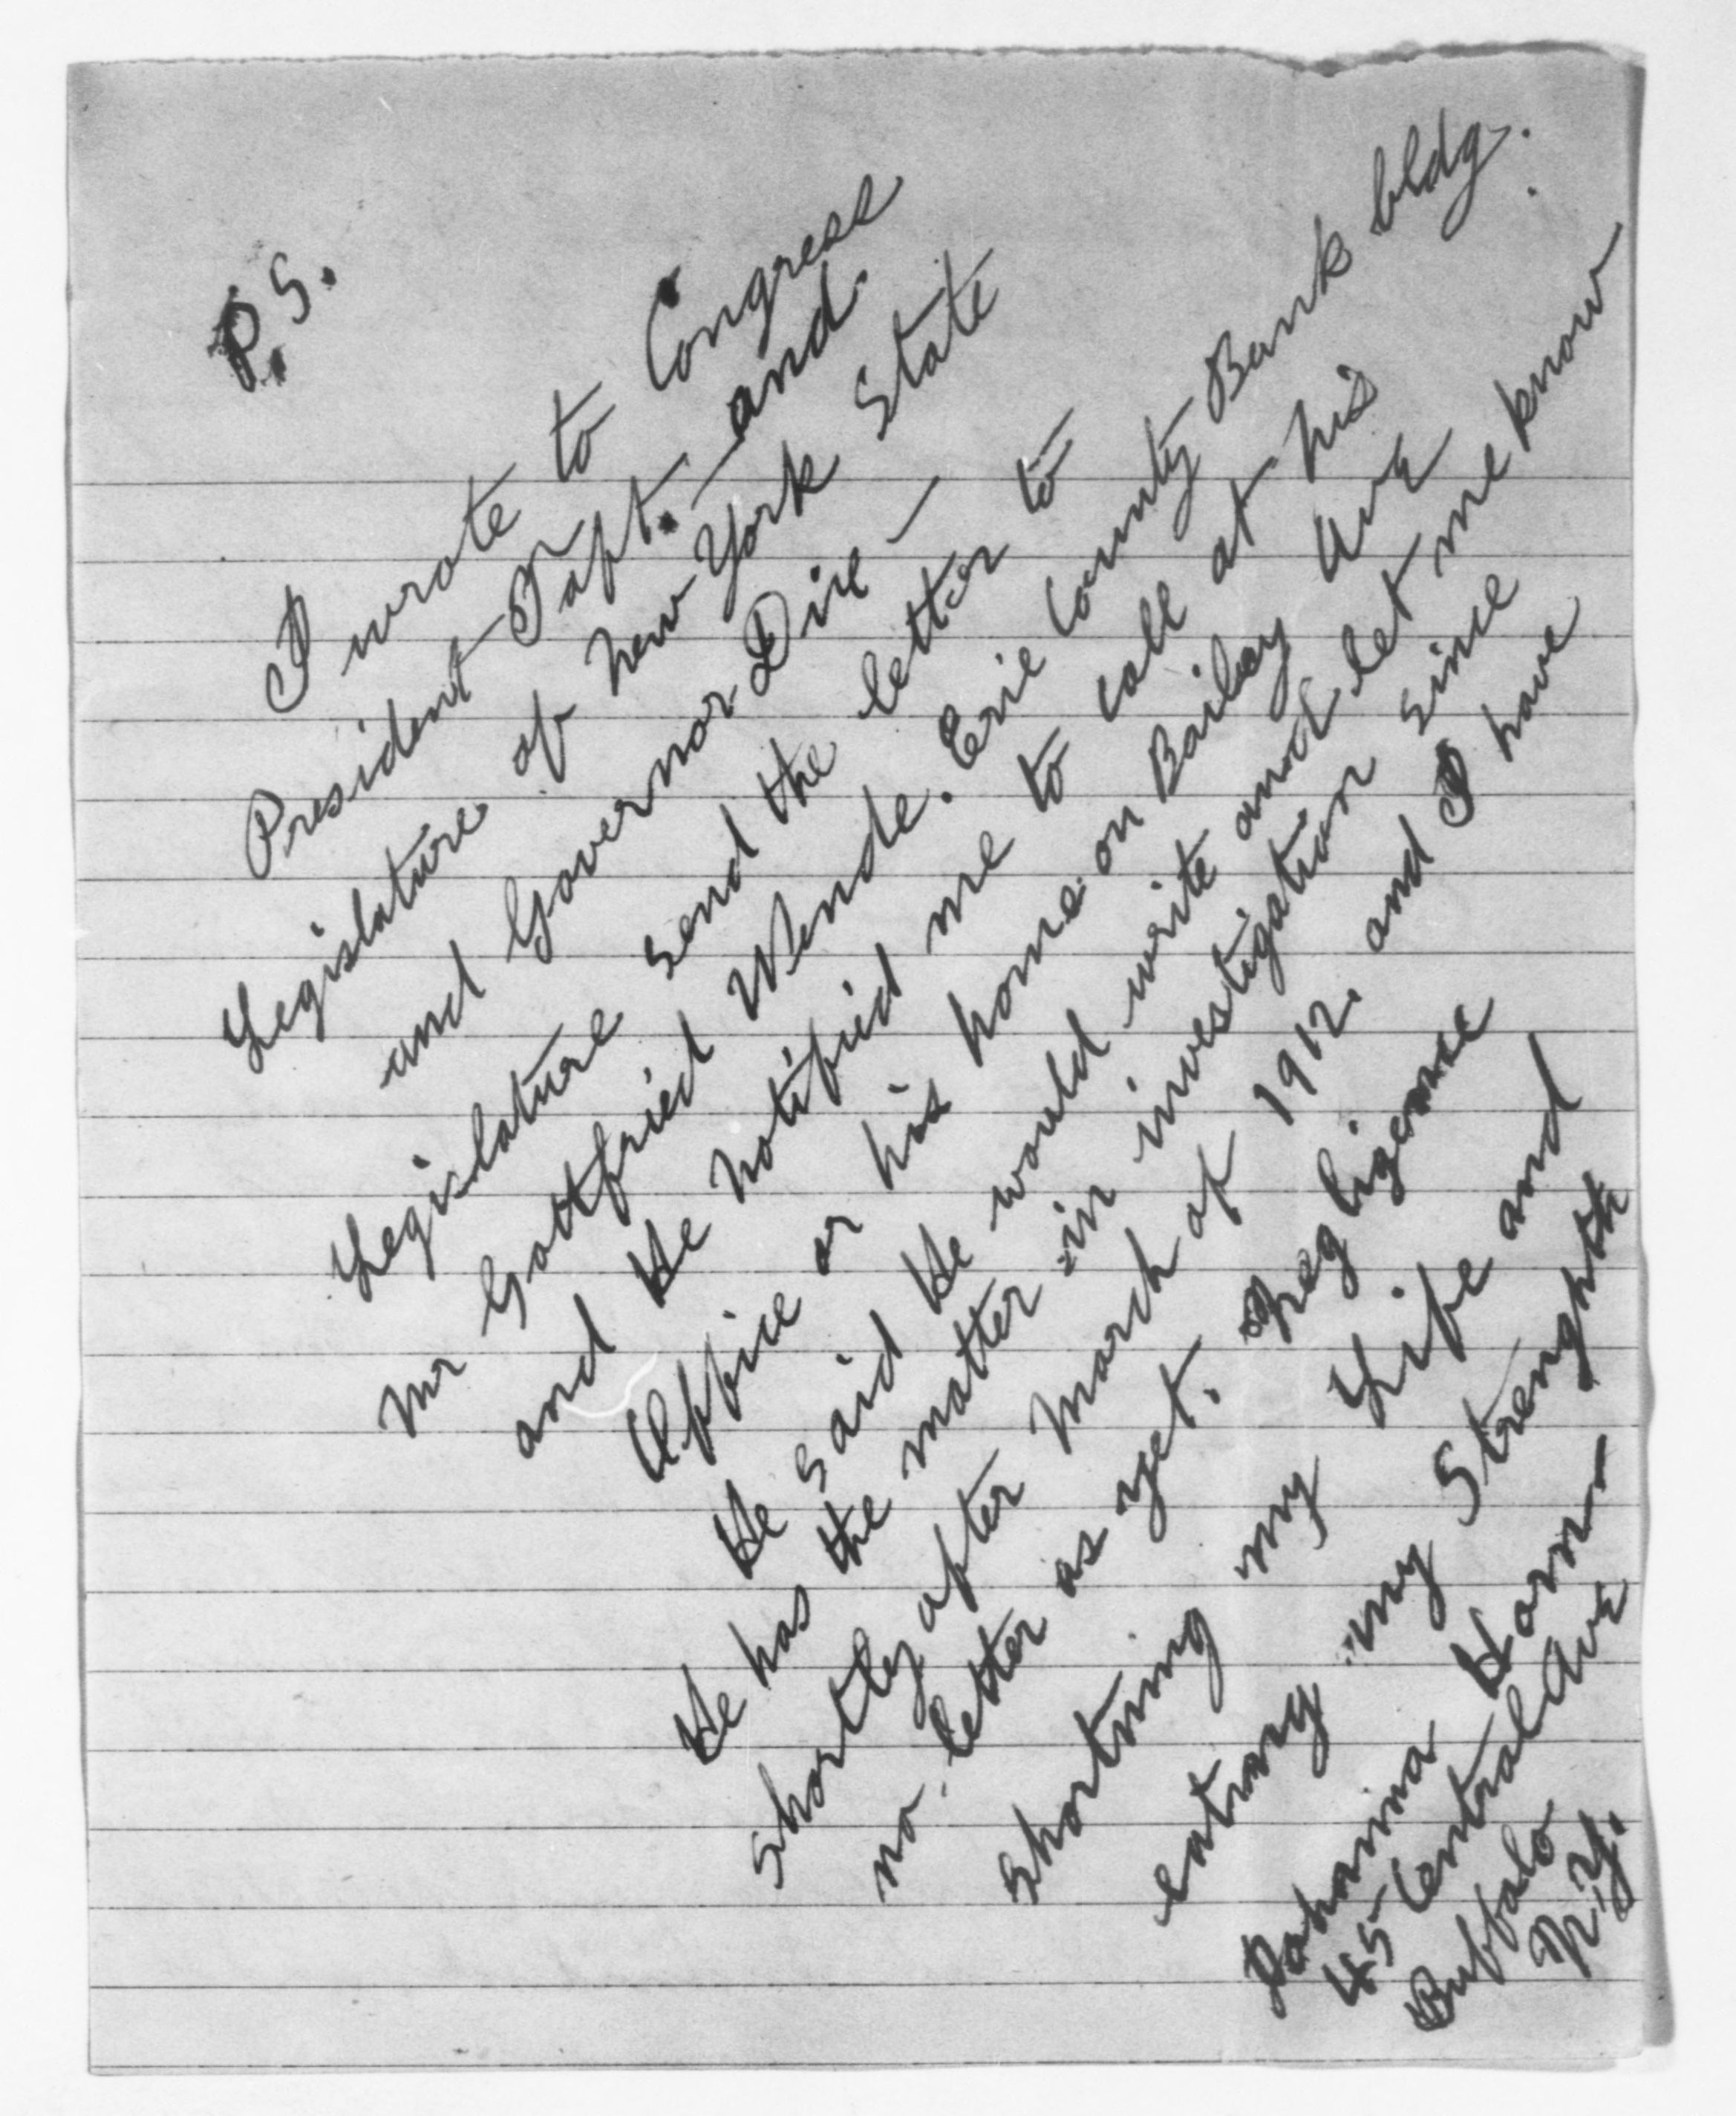 P.S.
I wrote to Congress
President Taft. and
Legislature of New York State
and Governor Dixe —
Legislature send the letter to
Mr Gottfried Wende. Erie County Bank bldg.
and He notified me to call at his
Office or his home on Bailey Ave
He said He would write and let me know
He has the matter in investigation since
shortly after March of 1912. and I have
no letter as yet. Negligense
shortning my Life and
eatrong my Strenghth
Johanna Horn
45 Central Ave
Buffalo
N.Y.